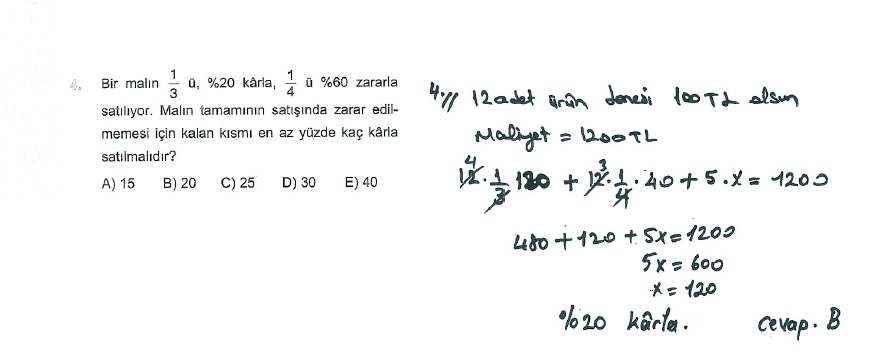 4. Bir malın 1/3 ü, %20 kârla, 1/4 ü %60 zararla
satılıyor. Malın tamamının satışında zarar edil-
memesi için kalan kısmı en az yüzde kaç kârla
satılmalıdır?
A) 15 B) 20 C) 25 D) 30 E) 40
4.// 12 adet ürün tanesi 100 TL olsun
Maliyet = 1200 TL
12.1/3 120 + 12.1/4.40 + 5.x = 1200
4 3
480 + 120 + 5x = 1200
5x = 600
x = 120
%20 kârla. cevap. B